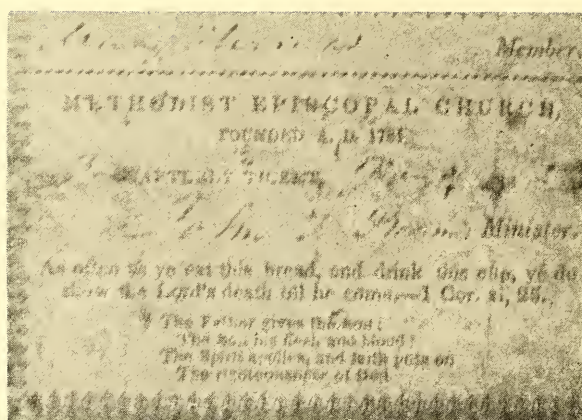 Member.
METHODIST EPISCOPAL CHURCH,
FOUNDED A. D. 1784.
QUARTERLY TICKET,
Minister.
As often as ye eat this bread, and drink this cup, ye do
show the Lord's death till he come.—1 Cor. xi, 26.
The Father gives the Son;
The Son his flesh and blood;
The Spirit applies, and faith puts on
The righteousness of God.